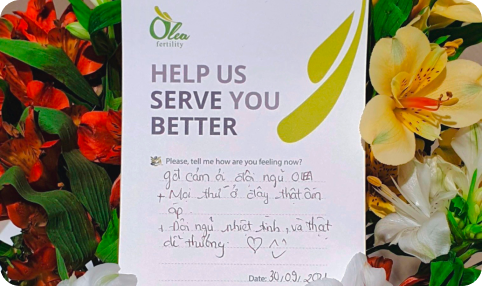 Olea
fertility
HELP US
SERVE YOU
BETTER
Please, tell me how are you feeling now?
gởi cảm ơn đội ngũ OLEA
+ Mọi thứ ở đây thật ấm
áp
+ Đội ngũ nhiệt tình, và thật
dễ thương ♡ ^^
Date: 30/09/2021